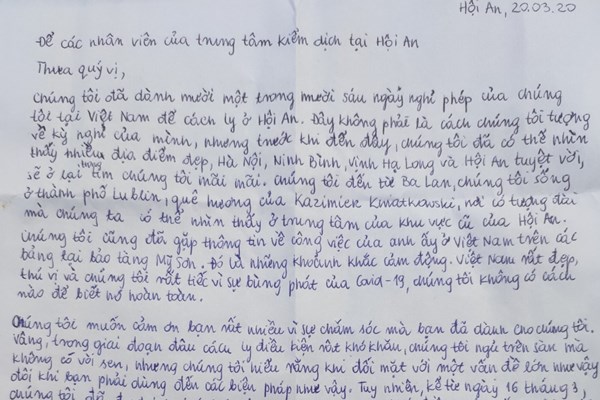 Hội An, 20.03.20
Để các nhân viên của trung tâm kiểm dịch tại Hội An
Thưa quý vị,
chúng tôi đã dành mười một trong mười sáu ngày nghỉ phép của chúng
tôi tại Việt Nam để cách ly ở Hội An. Đây không phải là cách chúng tôi tượng
về kỳ nghỉ của mình, nhưng trước khi đến đây, chúng tôi đã có thể nhìn
thấy nhiều địa điểm đẹp, Hà Nội, Ninh Bình, Vịnh Hạ Long và Hội An tuyệt vời,
sẽ ở lại trong tim chúng tôi mãi mãi. Chúng tôi đến từ Ba Lan, chúng tôi sống
ở thành phố Lublin, quê hương của Kazimierk Kwiatkowski, nơi có tượng đài
mà chúng ta có thể nhìn thấy ở trung tâm của khu vực cũ của Hội An.
Chúng tôi cũng đã gặp thông tin về công việc của anh ấy ở Việt Nam trên các
bảng tại bảo tàng Mỹ Sơn. Đó là những khoảnh khắc cảm động. Việt Nam rất đẹp,
thú vị và chúng tôi rất tiếc vì sự bùng phát của Covid-19, chúng tôi không có cách
nào để biết nó hoàn toàn.
Chúng tôi muốn cảm ơn bạn rất nhiều vì sự chăm sóc mà bạn đã dành cho chúng tôi.
Vâng, trong giai đoạn đầu cách ly điều kiện rất khó khăn, chúng tôi ngủ trên sàn mà
không có vòi sen, nhưng chúng tôi hiểu rằng khi đối mặt với một vấn đề lớn như vậy
đôi khi bạn phải dùng đến các biện pháp như vậy. Tuy nhiên, kể từ ngày 16 tháng 3,
chúng tôi đã